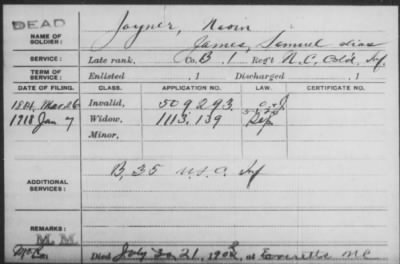 DEAD
NAME OF SOLDIER: Joyner,
James, Samuel alias
SERVICE: Late rank, Co. B. 1 Reg't N.C. Col'd. Inf.
TERM OF SERVICE: Enlisted , 1 Discharged , 1
DATE OF FILING. CLASS. APPLICATION NO. LAW. CERTIFICATE NO.
Invalid, 509293.
1918 Jan 7 Widow, 1113.139
Minor,
ADDITIONAL SERVICES: B, 35 U.S.C. Inf
REMARKS:
M. M.
Died July 21, 190 , at N.C.